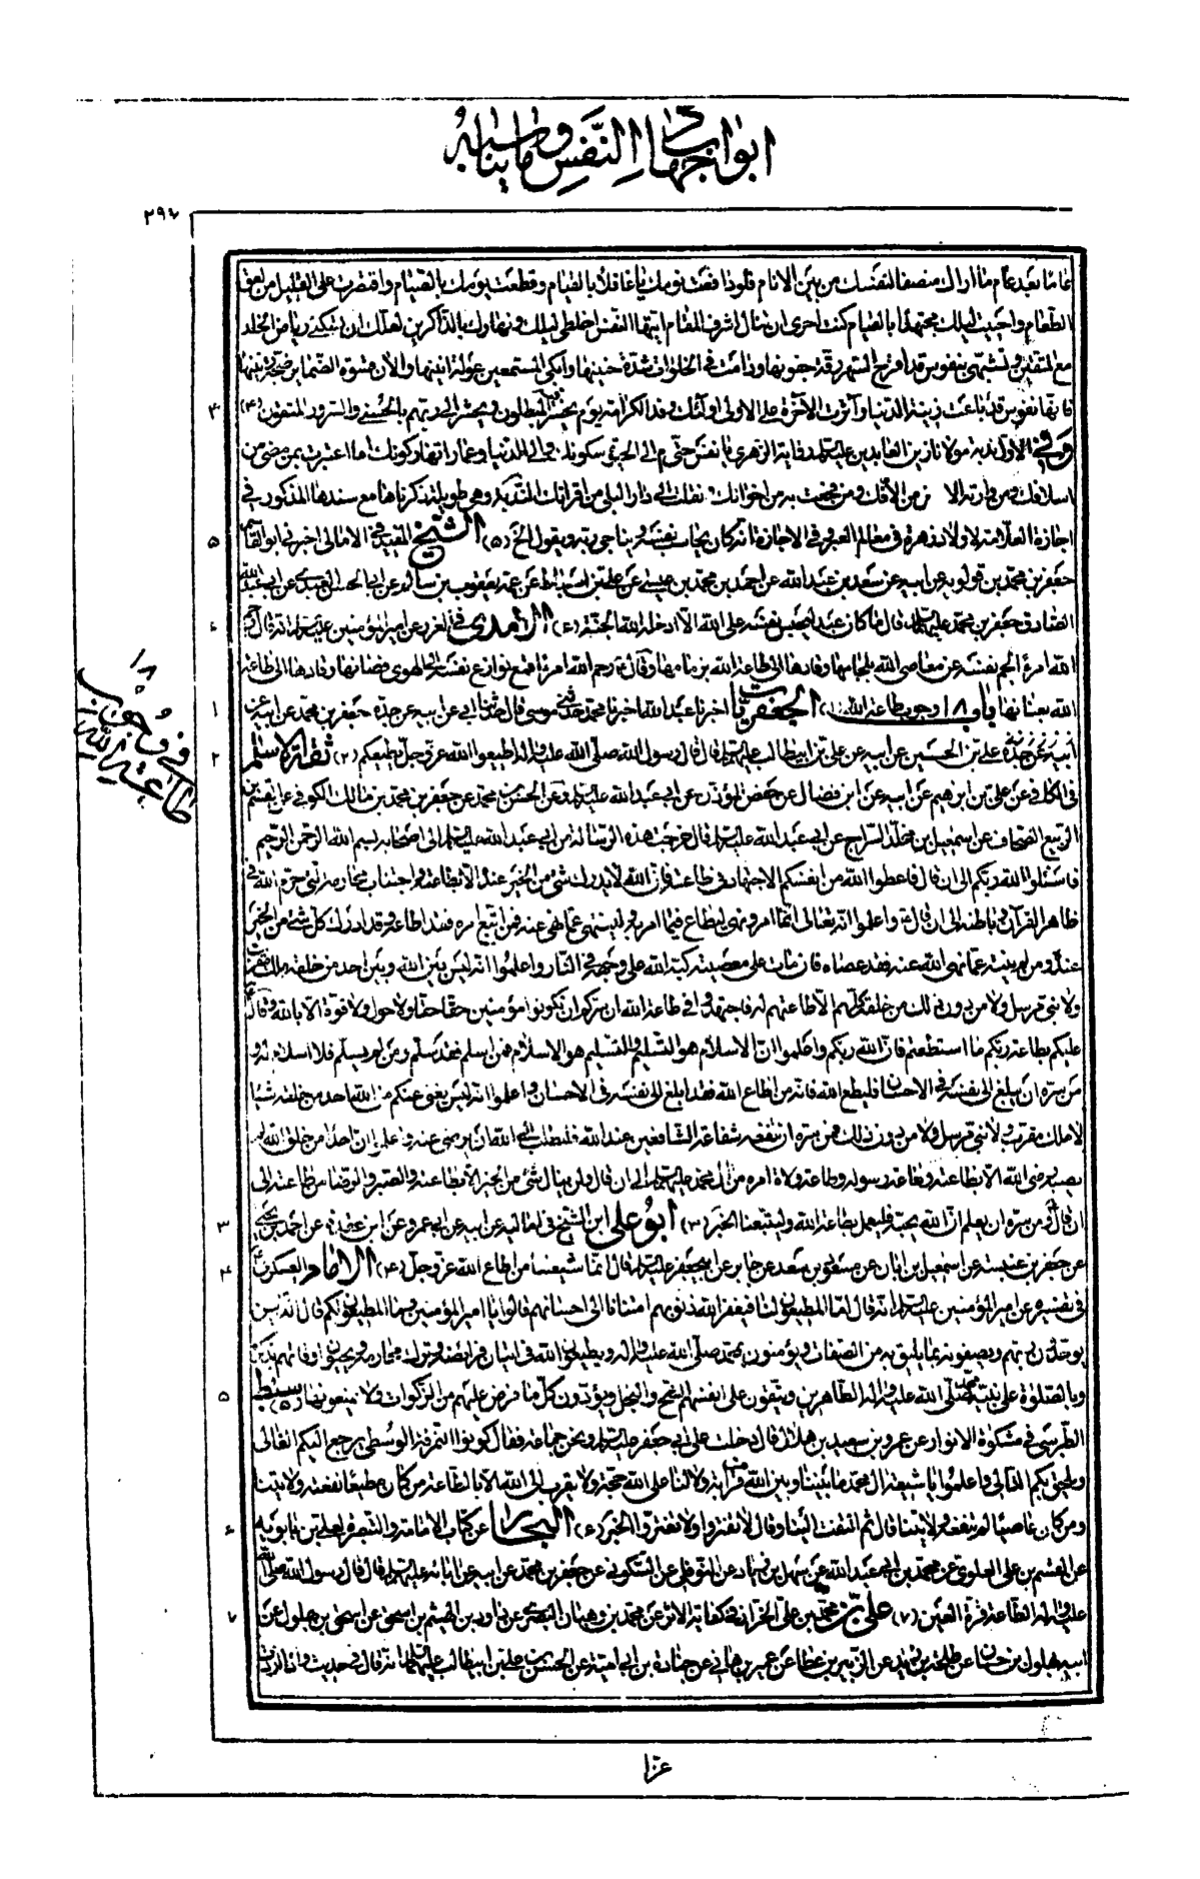 ابواب جهاد النفس وما يناسبه
٢٩٦
عاما بعد عام ما اراك منصفا لنفسك من بين الانام فلو دافعت نومك يا غافلا بالقيام وقطعت يومك بالصيام واقتصرت على القليل من لعق
الطعام واحييت ليلك مجتهدا بالقيام كنت احرى ان تنال اشرف المقام ايتها النفس اخلطي ليلك ونهارك بالذاكرين لعلك ان تسكني رياض الخلد
مع المتقين وتشبهي بنفوس قد اقرح السهر رقة جفونها ودامت في الخلوات شدة حنينها وابكى المستمعين عولة انينها والان قسوة الضمائر ضجة رنينها
فانها نفوس قد باعت زينة الدنيا وآثرت الآخرة على الاولى اولئك وفد الكرامة يوم يخسر فيه المبطلون ويحشر الى ربهم بالحسنى والسرور المتقون (٤)
وفي الاول ندبة مولانا زين العابدين عليه السلم رواية الزهري يا نفس حتى م الى الحيوة سكونك والى الدنيا وعمارتها ركونك اما اعتبرت بمن مضى من
اسلافك ومن وارته الا رض من الافك ومن فجعت به من اخوانك ونقلت الى دار البلى من اقرانك الندبة وهي طويلة ذكرناها مع سندها المذكور في
اجازة العلامة لاولاد زهرة في معالم العبر وفي الاجازة انه كان يحاسب نفسه ويناجي ربه ويقول الخ (٥) الشيخ المفيد في الامالي اخبرني ابو القاسم
جعفر بن محمد بن قولويه عن ابيه عن سعد بن عبد الله عن احمد بن محمد بن عيسى عن علي بن اسباط عن عمه يعقوب بن سالم عن ابي الحسن العبدي عن ابي عبد الله
الصادق جعفر بن محمد عليهما السلم قال ما كان عبد ليحبس نفسه على الله الا ادخله الله الجنة (٦) الآمدي في الغرر عن امير المؤمنين عليه السلم انه قال رحم
الله امرءا الجم نفسه عن معاصي الله بلجامها وقادها الى طاعة الله بزمامها وقال ع رحم الله امرءا قمع نوازع نفسه الى الهوى فصانها وقادها الى طاعة
الله بعنانها باب ١٨ وجوب طاعة الله (١) الجعفريات اخبرنا عبد الله اخبرنا محمد حدثني موسى قال حدثنا ابي عن ابيه عن جده جعفر بن محمد عن ابيه عن
ابيه عن جده علي بن الحسين عن ابيه عن علي بن ابيطالب عليه السلم قال قال رسول الله صلى الله عليه واله اطيعوا الله عز وجل يطيعكم (٢) ثقة الاسلم
في الكافي عن علي بن ابرهيم عن ابيه عن ابن فضال عن حفص المؤذن عن ابي عبد الله عليه السلم وعن الحسن بن محمد عن جعفر بن محمد بن مالك الكوفي عن القسم بن
الربيع الصحاف عن اسمعيل بن مخلد السراج عن ابي عبد الله عليه السلم قال خرجت هذه الرسالة من ابي عبد الله عليه السلم الى اصحابه بسم الله الرحمن الرحيم
فاسئلوا الله ربكم الى ان قال فاعطوا الله من انفسكم الاجتهاد في طاعته فان الله لا يدرك شئ من الخير عنده الا بطاعته واجتناب محارمه التي حرم الله في
ظاهر القرآن وباطنه الى ان قال ع واعلموا انه تعالى انما امر ونهى ليطاع فيما امر به ولينتهى عما نهى عنه فمن اتبع امره فقد اطاعه وقد ادرك كل شئ من الخير
عنده ومن لم ينته عما نهى الله عنه فقد عصاه فان مات على معصيته كبه الله على وجهه في النار واعلموا انه ليس بين الله وبين احد من خلقه ملك مقرب
ولا نبي مرسل ولا من دون ذلك من خلقه كلهم الا طاعتهم له فاجتهدوا في طاعة الله ان سركم ان تكونوا مؤمنين حقا حقا ولا حول ولا قوة الا بالله وقال
عليكم بطاعة ربكم ما استطعتم فان الله ربكم واعلموا ان الاسلام هو التسليم والتسليم هو الاسلام فمن اسلم فقد سلم ومن لم يسلم فلا اسلام له و
من سره ان يبلغ الى نفسه في الاحسان فليطع الله فانه من اطاع الله فقد ابلغ الى نفسه في الاحسان واعلموا انه ليس يغني عنكم من الله احد من خلقه شيئا
لا ملك مقرب ولا نبي مرسل ولا من دون ذلك فمن سره ان تنفعه شفاعة الشافعين عند الله فليطلب الى الله ان يرضى عنه واعلموا ان احدا من خلق الله لم
يصب رضى الله الا بطاعته وطاعة رسوله وطاعة ولاة امره من آل محمد عليهم السلم الى ان قال ولن ينال شئ من الخير الا بطاعته والصبر والرضا من طاعته الى
ان قال ومن سره ان يعلم ان الله يحبه فليعمل بطاعة الله وليتبعنا الخبر (٣) ابو علي ابن الشيخ في اماليه عن ابيه عن ابي عمرو عن ابن عقدة عن احمد بن يحيى
عن جعفر بن عنبسة عن اسمعيل بن ابان عن مسعود بن سعد عن جابر عن ابي جعفر عليه السلم قال انما شيعتنا من اطاع الله عز وجل (٤) الامام العسكري
في تفسيره عن امير المؤمنين عليه السلم انه قال اما المطيعون لنا فيغفر الله ذنوبهم امتنانا الى احسانهم قالوا يا امير المؤمنين ومن المطيعون لكم قال الذين
يوحدون ربهم ويصفونه بما يليق به من الصفات ويؤمنون بمحمد صلى الله عليه واله ويطيعون الله في اتيان فرائضه وترك محارمه ويحيون اوقاتهم بذكره
وبالصلوة على نبيه محمد صلى الله عليه واله الطاهرين وينفون على انفسهم الشح والبخل ويؤدون كل ما فرض عليهم من الزكوات ولا يمنعونها (٥) سبط
الطبرسي في مشكوة الانوار عن عمرو بن سعيد بن هلال قال دخلت على ابي جعفر عليه السلم ونحن جماعة فقال كونوا النمرقة الوسطى يرجع اليكم الغالي
ويلحق بكم التالي واعلموا يا شيعة آل محمد ما بيننا وبين الله من قرابة ولا لنا على الله حجة ولا يقرب الى الله الا بالطاعة من كان مطيعا نفعته ولايتنا
ومن كان عاصيا لم تنفعه ولايتنا قال ثم التفت الينا وقال لا تغتروا ولا تفتروا الخبر (٦) البحار عن كتاب الامامة والتبصرة لعلي بن بابويه
عن القسم بن علي العلوي عن محمد بن ابي عبد الله عن سهل بن زياد عن النوفلي عن السكوني عن جعفر بن محمد عن ابيه عن آبائه عليهم السلم قال قال رسول الله صلى الله
عليه واله الطاعة قرة العين (٧) علي بن محمد بن علي الخزاز في كفاية الاثر عن محمد بن وهبان البصري عن داود بن الهيثم بن اسحق عن اسحق بن بهلول عن
ابيه بهلول بن حسان عن طلحة بن زيد عن الزبير بن عطا عن عمير بن هاني عن جنادة بن ابي امية عن الحسن بن علي بن ابيطالب عليهما السلم انه قال في حديث واذا اردت
عزا
١٨
في وجوب
طاعة الله
٤
٥
٦
١
٢
٣
٤
٥
٦
٧